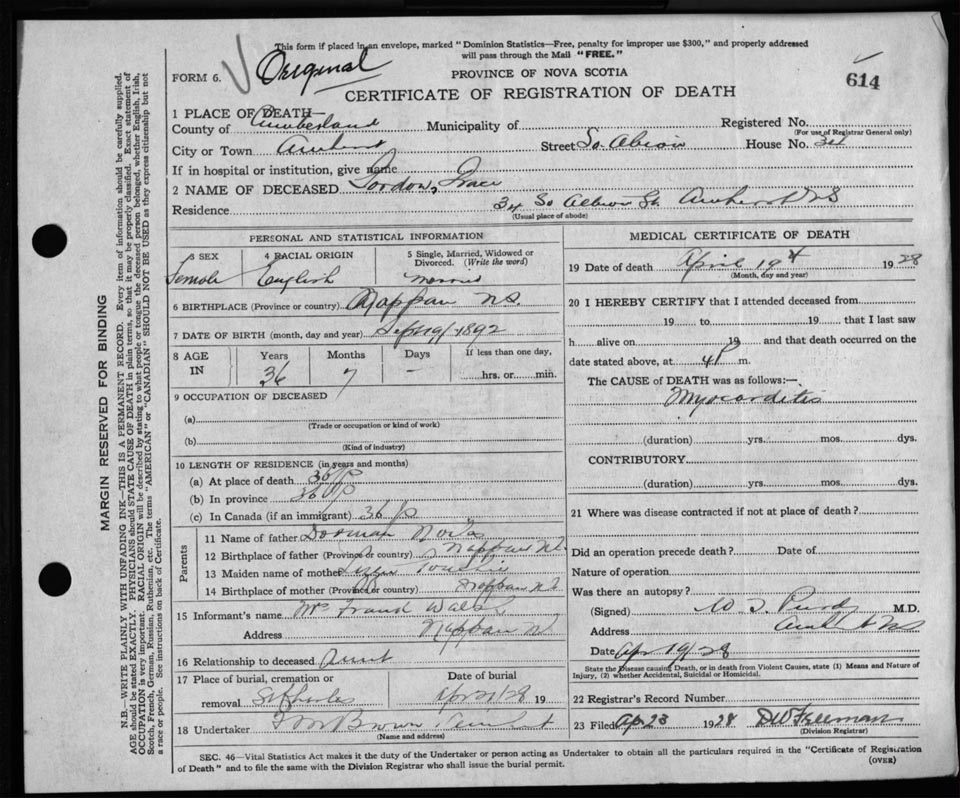 This form if placed in an envelope, marked "Dominion Statistics—Free, penalty for improper use $300," and properly addressed
will pass through the Mail "FREE."
FORM 6. Original
PROVINCE OF NOVA SCOTIA
614
CERTIFICATE OF REGISTRATION OF DEATH
1 PLACE OF DEATH—
County of Cumberland Municipality of Registered No.
(For use of Registrar General only)
City or Town Amherst Street So. Albion House No. 34
If in hospital or institution, give name
2 NAME OF DECEASED Grace
Residence 34 So Albion St. Amherst NS
(Usual place of abode)
PERSONAL AND STATISTICAL INFORMATION
3 SEX Female
4 RACIAL ORIGIN English
5 Single, Married, Widowed or Divorced. (Write the word) Married
6 BIRTHPLACE (Province or country) Nappan N.S.
7 DATE OF BIRTH (month, day and year) Sept 19/1892
8 AGE IN Years 36 Months 7 Days – If less than one day, hrs. or min.
9 OCCUPATION OF DECEASED
(a)
(Trade or occupation or kind of work)
(b)
(Kind of industry)
10 LENGTH OF RESIDENCE (in years and months)
(a) At place of death
(b) In province 36
(c) In Canada (if an immigrant) 36
Parents
11 Name of father
12 Birthplace of father (Province or country) Nappan N.S.
13 Maiden name of mother
14 Birthplace of mother (Province or country) Nappan N.S.
15 Informant's name Mrs Frank
Address Nappan N.S.
16 Relationship to deceased Aunt
17 Place of burial, cremation or removal
Date of burial Apr 21/28 19
18 Undertaker Brown Amherst
(Name and address)
MEDICAL CERTIFICATE OF DEATH
19 Date of death April 19th 1928
(Month, day and year)
20 I HEREBY CERTIFY that I attended deceased from
19 to 19 that I last saw
h alive on 19 and that death occurred on the
date stated above, at 4 P m.
The CAUSE of DEATH was as follows:—
Myocarditis
(duration) yrs. mos. dys.
CONTRIBUTORY
(duration) yrs. mos. dys.
21 Where was disease contracted if not at place of death?
Did an operation precede death? Date of
Nature of operation
Was there an autopsy?
(Signed) Purdy M.D.
Address Amherst NS
Date Apr 19/28
State the Disease causing Death, or in death from Violent Causes, state (1) Means and Nature of
Injury, (2) whether Accidental, Suicidal or Homicidal.
22 Registrar's Record Number
23 Filed Apr 23 1928 Freeman
(Division Registrar)
SEC. 46—Vital Statistics Act makes it the duty of the Undertaker or person acting as Undertaker to obtain all the particulars required in the "Certificate of Registration
of Death" and to file the same with the Division Registrar who shall issue the burial permit.
(OVER)
MARGIN RESERVED FOR BINDING
N.B.—WRITE PLAINLY WITH UNFADING INK—THIS IS A PERMANENT RECORD. Every item of information should be carefully supplied.
AGE should be stated EXACTLY. PHYSICIANS should STATE CAUSE OF DEATH in plain terms, so that it may be properly classified. Exact statement of
OCCUPATION is very important. RACIAL ORIGIN will be described by stating to what people or tongue the deceased person belonged, whether English, Irish,
Scotch, French, German, Russian, Ruthenian, etc. The terms "AMERICAN" or "CANADIAN" SHOULD NOT BE USED as they express citizenship but not
a race or people. See instructions on back of Certificate.